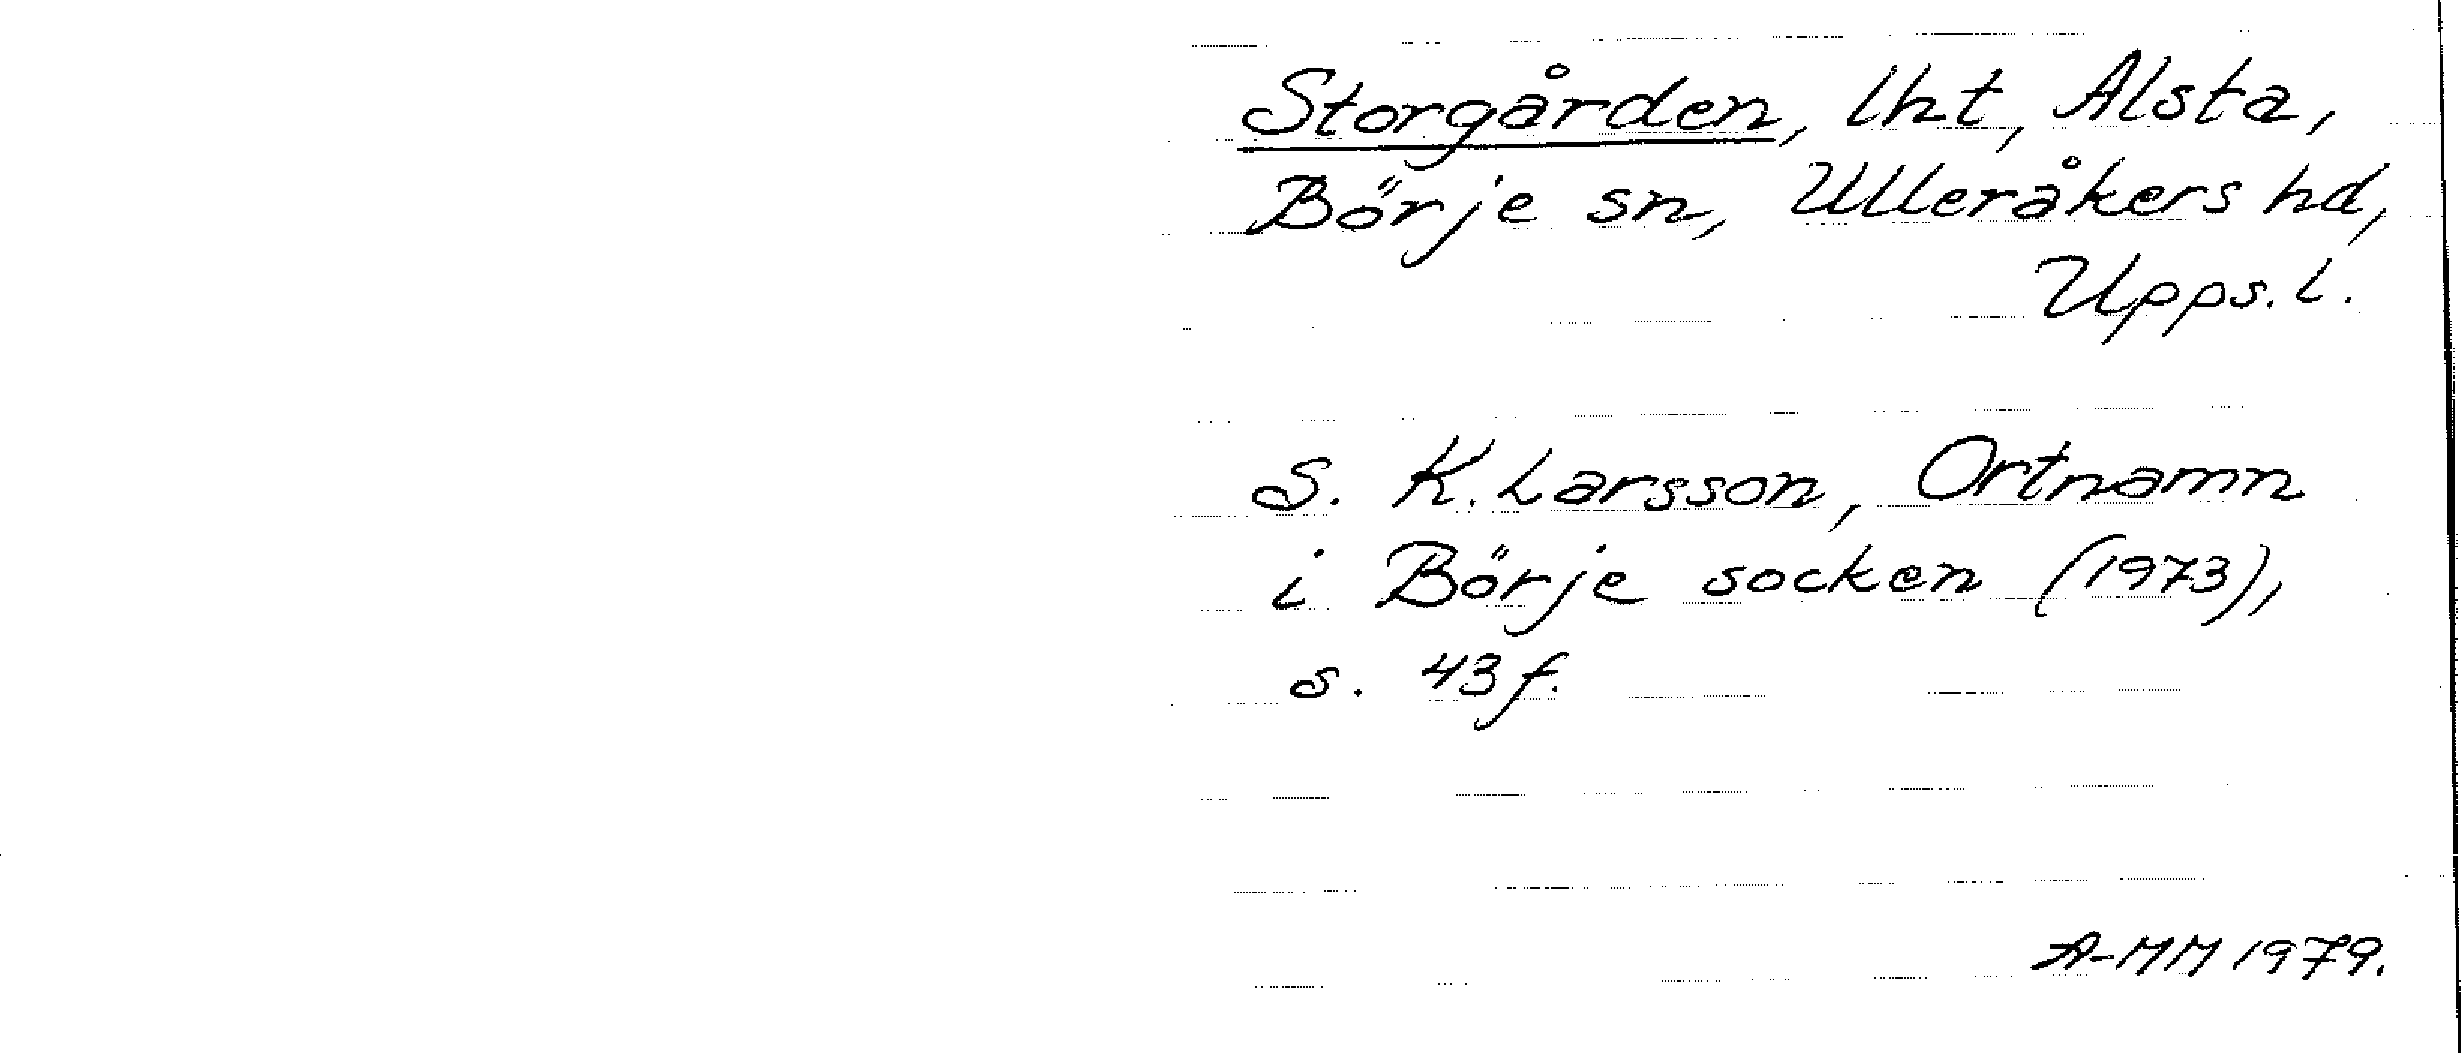 Storgården, lht, Alsta,
Börje sn, Ulleråkers hd,
Upps. l.
S. K. Larsson, Ortnamn
i Börje socken (1973),
s. 43 f.
A-MM 1979.